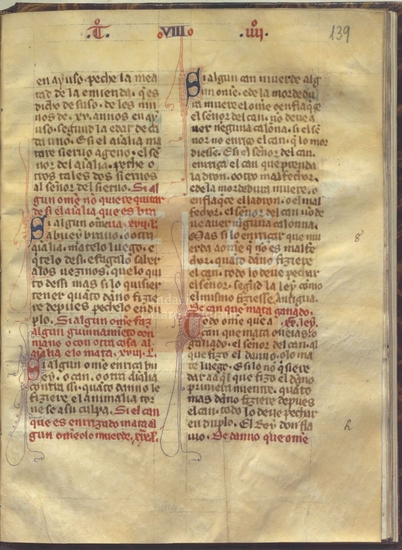 .t. VIII .iiij.
139
en ayuso. peche la mea
tad de la emienda. q̃ es
dicho de suso. de los nin
nos de .xv. annos en ay
uso. segund la edat de ca
da uno. E si el aĩalia ma
tare sieruo ageno. el se
nor del aĩalia. peche o
tros tales dos sieruos
al señor del sieruo. Si al
gun om̃e no quiere quitar
de si el aĩalia que es brau
Si algun om̃e a
buey brauo. o otra
aĩalia. matelo luego. e
q̃ lo
a los uezinos. que lo
si mas si lo quisier
tener quãto dãno fizie
re depues pechelo en du
plo. Si algun om̃e faz
algun
mano o con otra cosa al
aĩalia e lo mata. xviij. l.
Si algun om̃e enrriza bu
ey. o can. o otra aĩalia
contra si. quãto danno le
fiziere el animalia to
ne se a su culpa. Si el can
que es enrrizado mata al
gun om̃e o lo muerde. xix. l.
Si algun can muerde alg
un om̃e. e de la mordedu
ra muere el om̃e o enflaq̃ce
el señor del can. no deue a
uer neguna calonna. si el se
nor no enrrizo el can. q̃ lo mor
diesse. E si el señor del can.
enrriza el can que prenda
ladron. o otro malfechor.
e de la mordedura muere. o
enflaq̃ce el ladron. o el mal
fechor. el señor del can no de
ue auer niguna calonna.
Mas si lo enrrizar que mu
erda a om̃e q̃ no es malfe
chor. quãto dãno fiziere
el can. todo lo deue pechar
el señor. segũd la ley como
el mismo fiziesse. Antigua.
De can que mata ganado.
Todo om̃e que a .xx. ley.
can que mata oueias. o
ganado. el señor del can. al
que fizo el danno. o lo ma
te luego. E si lo no quiere
dar a aq̃l que fizo el dãno
primera mientre. quãto
mas dãno fiziere depues
el can. todo lo deue pechar
en duplo. El Rey don fla
uio. De danno que om̃e
8
h